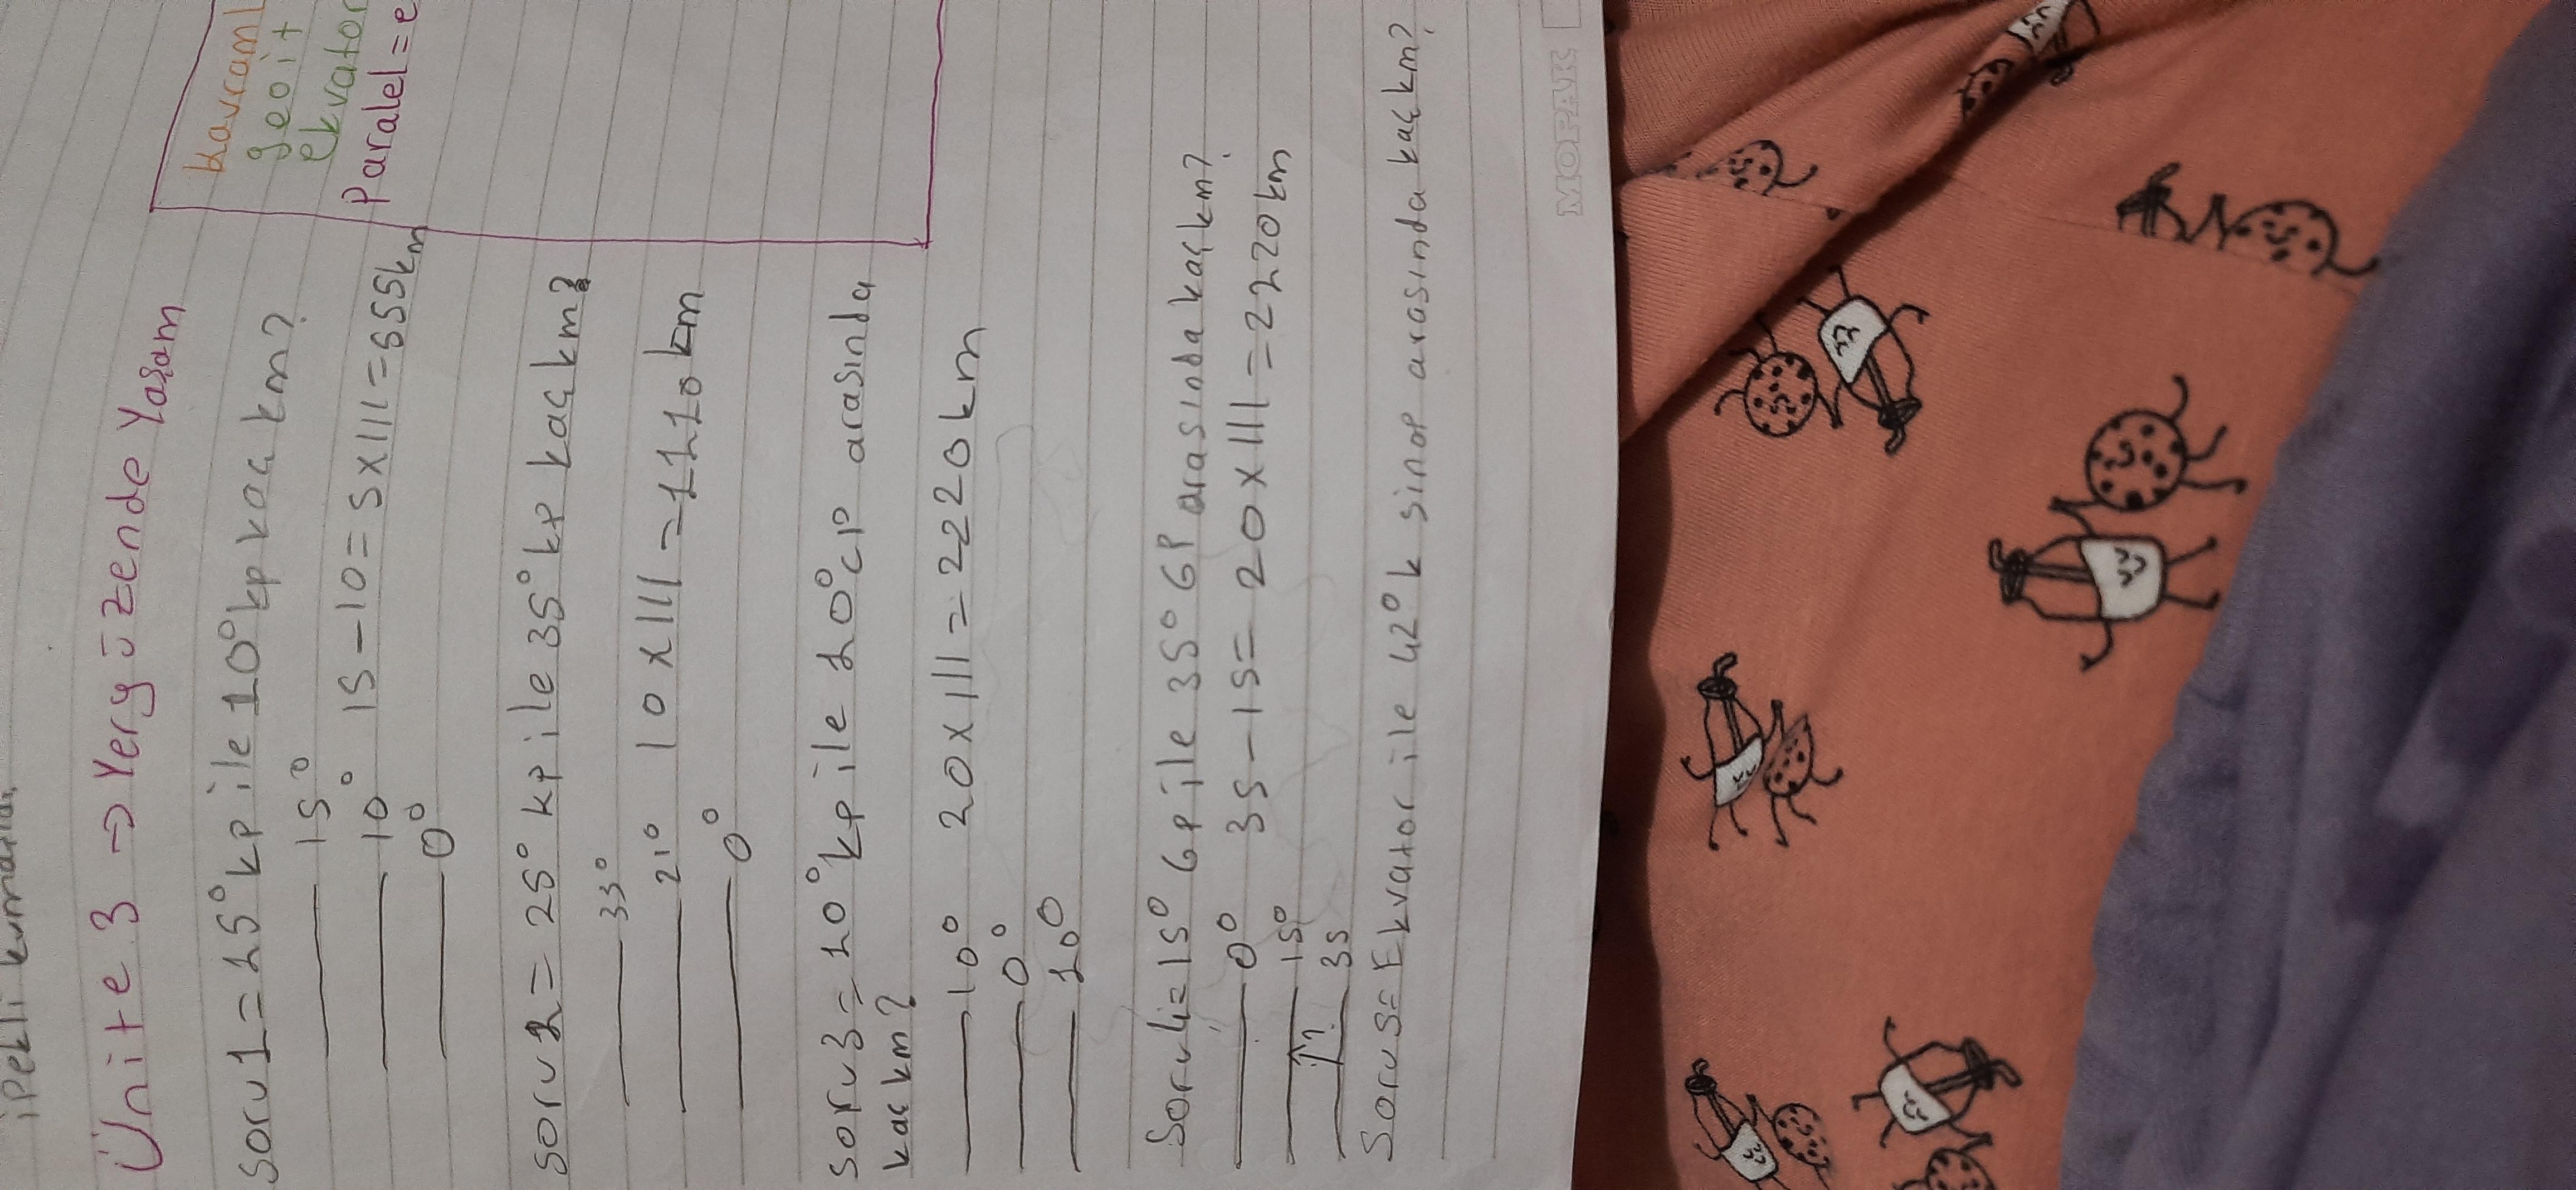 ipekli kumaşlar
Ünite 3 → Yeryüzende Yaşam
Kavraml
geoit
ekvator
Paralel=e
soru1=15°kp ile 10°kp kaç km?
15°
10° 15-10=5x111=555km
0°
soru2=25° kp ile 35°kp kaç km?
35°
21° 10x111=1110km
0°
soru3=10°kp ile 10°GP arasında
kaç km?
10° 20x111=2220km
0°
10°
Soru4=15° GP ile 35° GP arasında kaç km?
0° 35-15=20x111=2220km
15°
? 35
Soru5=Ekvator ile 42°k sinop arasında kaç km?
MOPAK